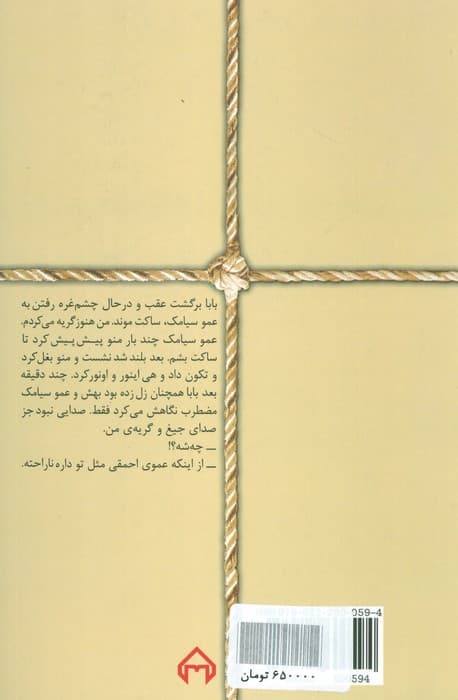 بابا برگشت عقب و درحال چشم‌غره رفتن به
عمو سیامک، ساکت موند. من هنوز گریه می‌کردم.
عمو سیامک چند بار منو پیش‌پیش کرد تا
ساکت بشم. بعد بلند شد نشست و منو بغل کرد
و تکون داد و هی اینور و اونور کرد. چند دقیقه
بعد بابا همچنان زل زده بود بهش و عمو سیامک
مضطرب نگاهش می‌کرد فقط. صدایی نبود جز
صدای جیغ و گریه‌ی من.
ــ چه‌شه؟!
ــ از اینکه عموی احمقی مثل تو داره ناراحته.
059-4
594
۶۵۰۰۰۰ تومان